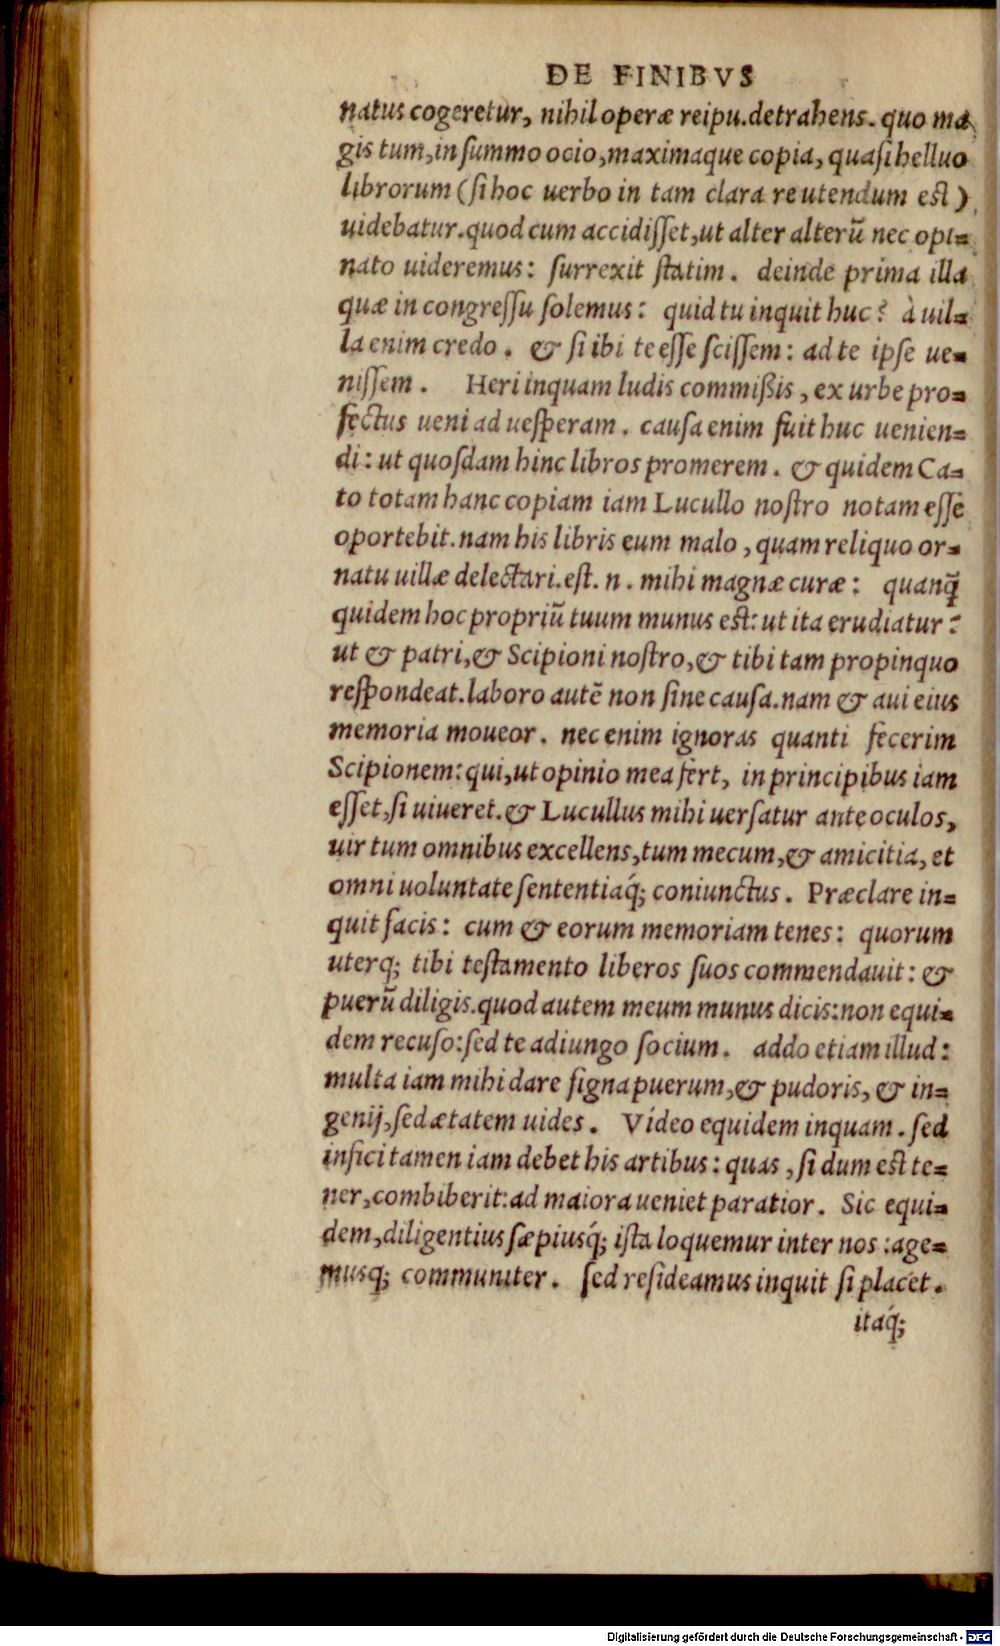 DE FINIBVS
natus cogeretur, nihil operæ reipu.detrahens. quo ma
gis tum,in ſummo ocio,maximaque copia, quaſi helluo
librorum (ſi hoc uerbo in tam clara re utendum eſt)
uidebatur.quod cum accidiſſet,ut alter alterũ nec opi=
nato uideremus: ſurrexit ſtatim. deinde prima illa
quæ in congreſſu ſolemus: quid tu inquit huc? à uil=
la enim credo. & ſi ibi te eſſe ſciſſem: ad te ipſe ue=
niſſem. Heri inquam ludis commißis, ex urbe pro=
fectus ueni ad ueſperam. cauſa enim fuit huc uenien=
di: ut quoſdam hinc libros promerem. & quidem Ca=
to totam hanc copiam iam Lucullo noſtro notam eſſe
oportebit.nam his libris eum malo, quam reliquo or=
natu uillæ delectari.eſt. n. mihi magnæ curæ: quanq̃
quidem hoc propriũ tuum munus eſt: ut ita erudiatur:
ut & patri,& Scipioni noſtro,& tibi tam propinquo
reſpondeat.laboro autẽ non ſine cauſa.nam & aui eius
memoria moueor. nec enim ignoras quanti fecerim
Scipionem: qui,ut opinio mea fert, in principibus iam
eſſet,ſi uiueret.& Lucullus mihi uerſatur ante oculos,
uir tum omnibus excellens,tum mecum,& amicitia, et
omni uoluntate ſententiaq́; coniunctus. Præclare in=
quit facis: cum & eorum memoriam tenes: quorum
uterq; tibi teſtamento liberos ſuos commendauit: &
puerũ diligis.quod autem meum munus dicis:non equi=
dem recuſo:ſed te adiungo ſocium. addo etiam illud:
multa iam mihi dare ſigna puerum,& pudoris, & in=
genij,ſed ætatem uides. Video equidem inquam. ſed
infici tamen iam debet his artibus: quas, ſi dum eſt te=
ner,combiberit:ad maiora ueniet paratior. Sic equi=
dem,diligentius ſæpiusq́; iſta loquemur inter nos:age=
musq; communiter. ſed reſideamus inquit ſi placet.
itaq́;
Digitalisierung gefördert durch die Deutsche Forschungsgemeinschaft - DFG